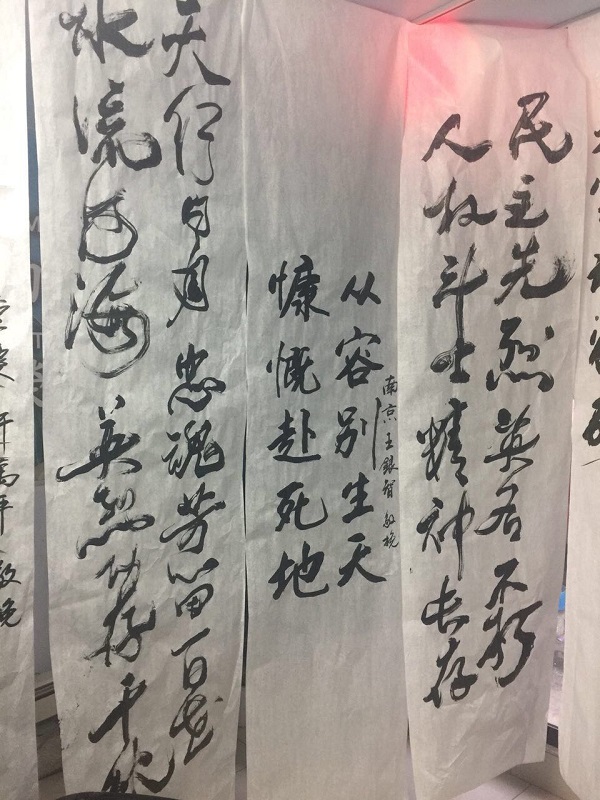 民主先烈英名不朽
人权斗士精神长存
南京王銀智敬挽
从容别生天
慷慨赴死地
天行日月忠魂芳留百世
水流河海英烈功存千秋
许萬平敬挽